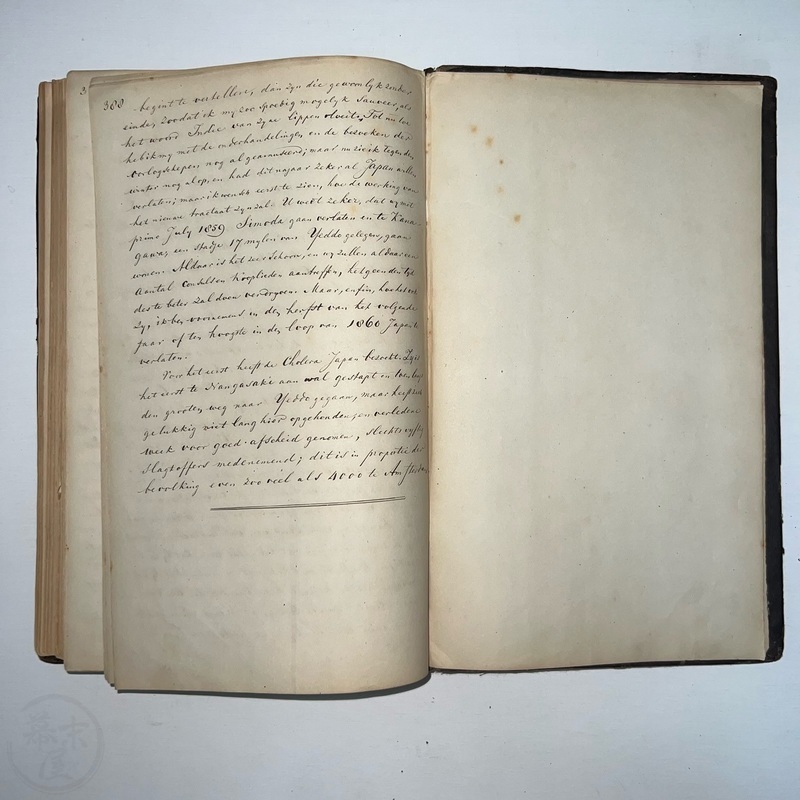 388
begint te vertellen, dan zyn die gewoonlyk zonder
einde, zoodat ik my zoo spoedig mogelyk sauveer, als
het woord Indie van zyne lippen vloeit. Tot nu toe
heb ik my met de onderhandelingen en de bezoeken der
oorlogschepen nog al geamuseerd; maar nu zie ik tegen den
winter nog al op, en had dit najaar zeker al Japan willen
verlaten; maar ik wensch eerst te zien, hoe de werking van
het nieuwe tractaat zyn zal. U weet zeker, dat wy met
primo July 1859 Simoda gaan verlaten en te Kana
gawa, een stadje 17 mylen van Yeddo gelegen, gaan
wonen. Aldaar is het zeer schoon, en wy zullen aldaar een
aantal Consels en Kooplieden aantreffen, hetgeen den tyd
des te beter zal doen verdryven. Maar, enfin, hoe het ook
zy, ik ben voornemens in den herfst van het volgende
jaar of ten hoogste in den loop van 1860 Japan te
verlaten.
Voor het eerst heeft de Cholera Japan bezocht. Zy is
het eerst te Nangasaki aan wal gestapt en toen langs
den grooten weg naar Yeddo gegaan, maar heeft zich
gelukkig niet lang hier opgehouden, en verledene
week voor goed afscheid genomen, slechts vyftig
slagtoffers medenemend; dit is in proportie der
bevolking even zoo veel als 4000 te Amsterdam
幕末屋